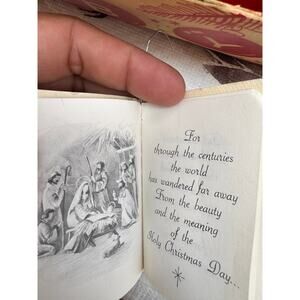 For
through the centuries
the world
has wandered far away
From the beauty
and the meaning
of the
Holy Christmas Day...